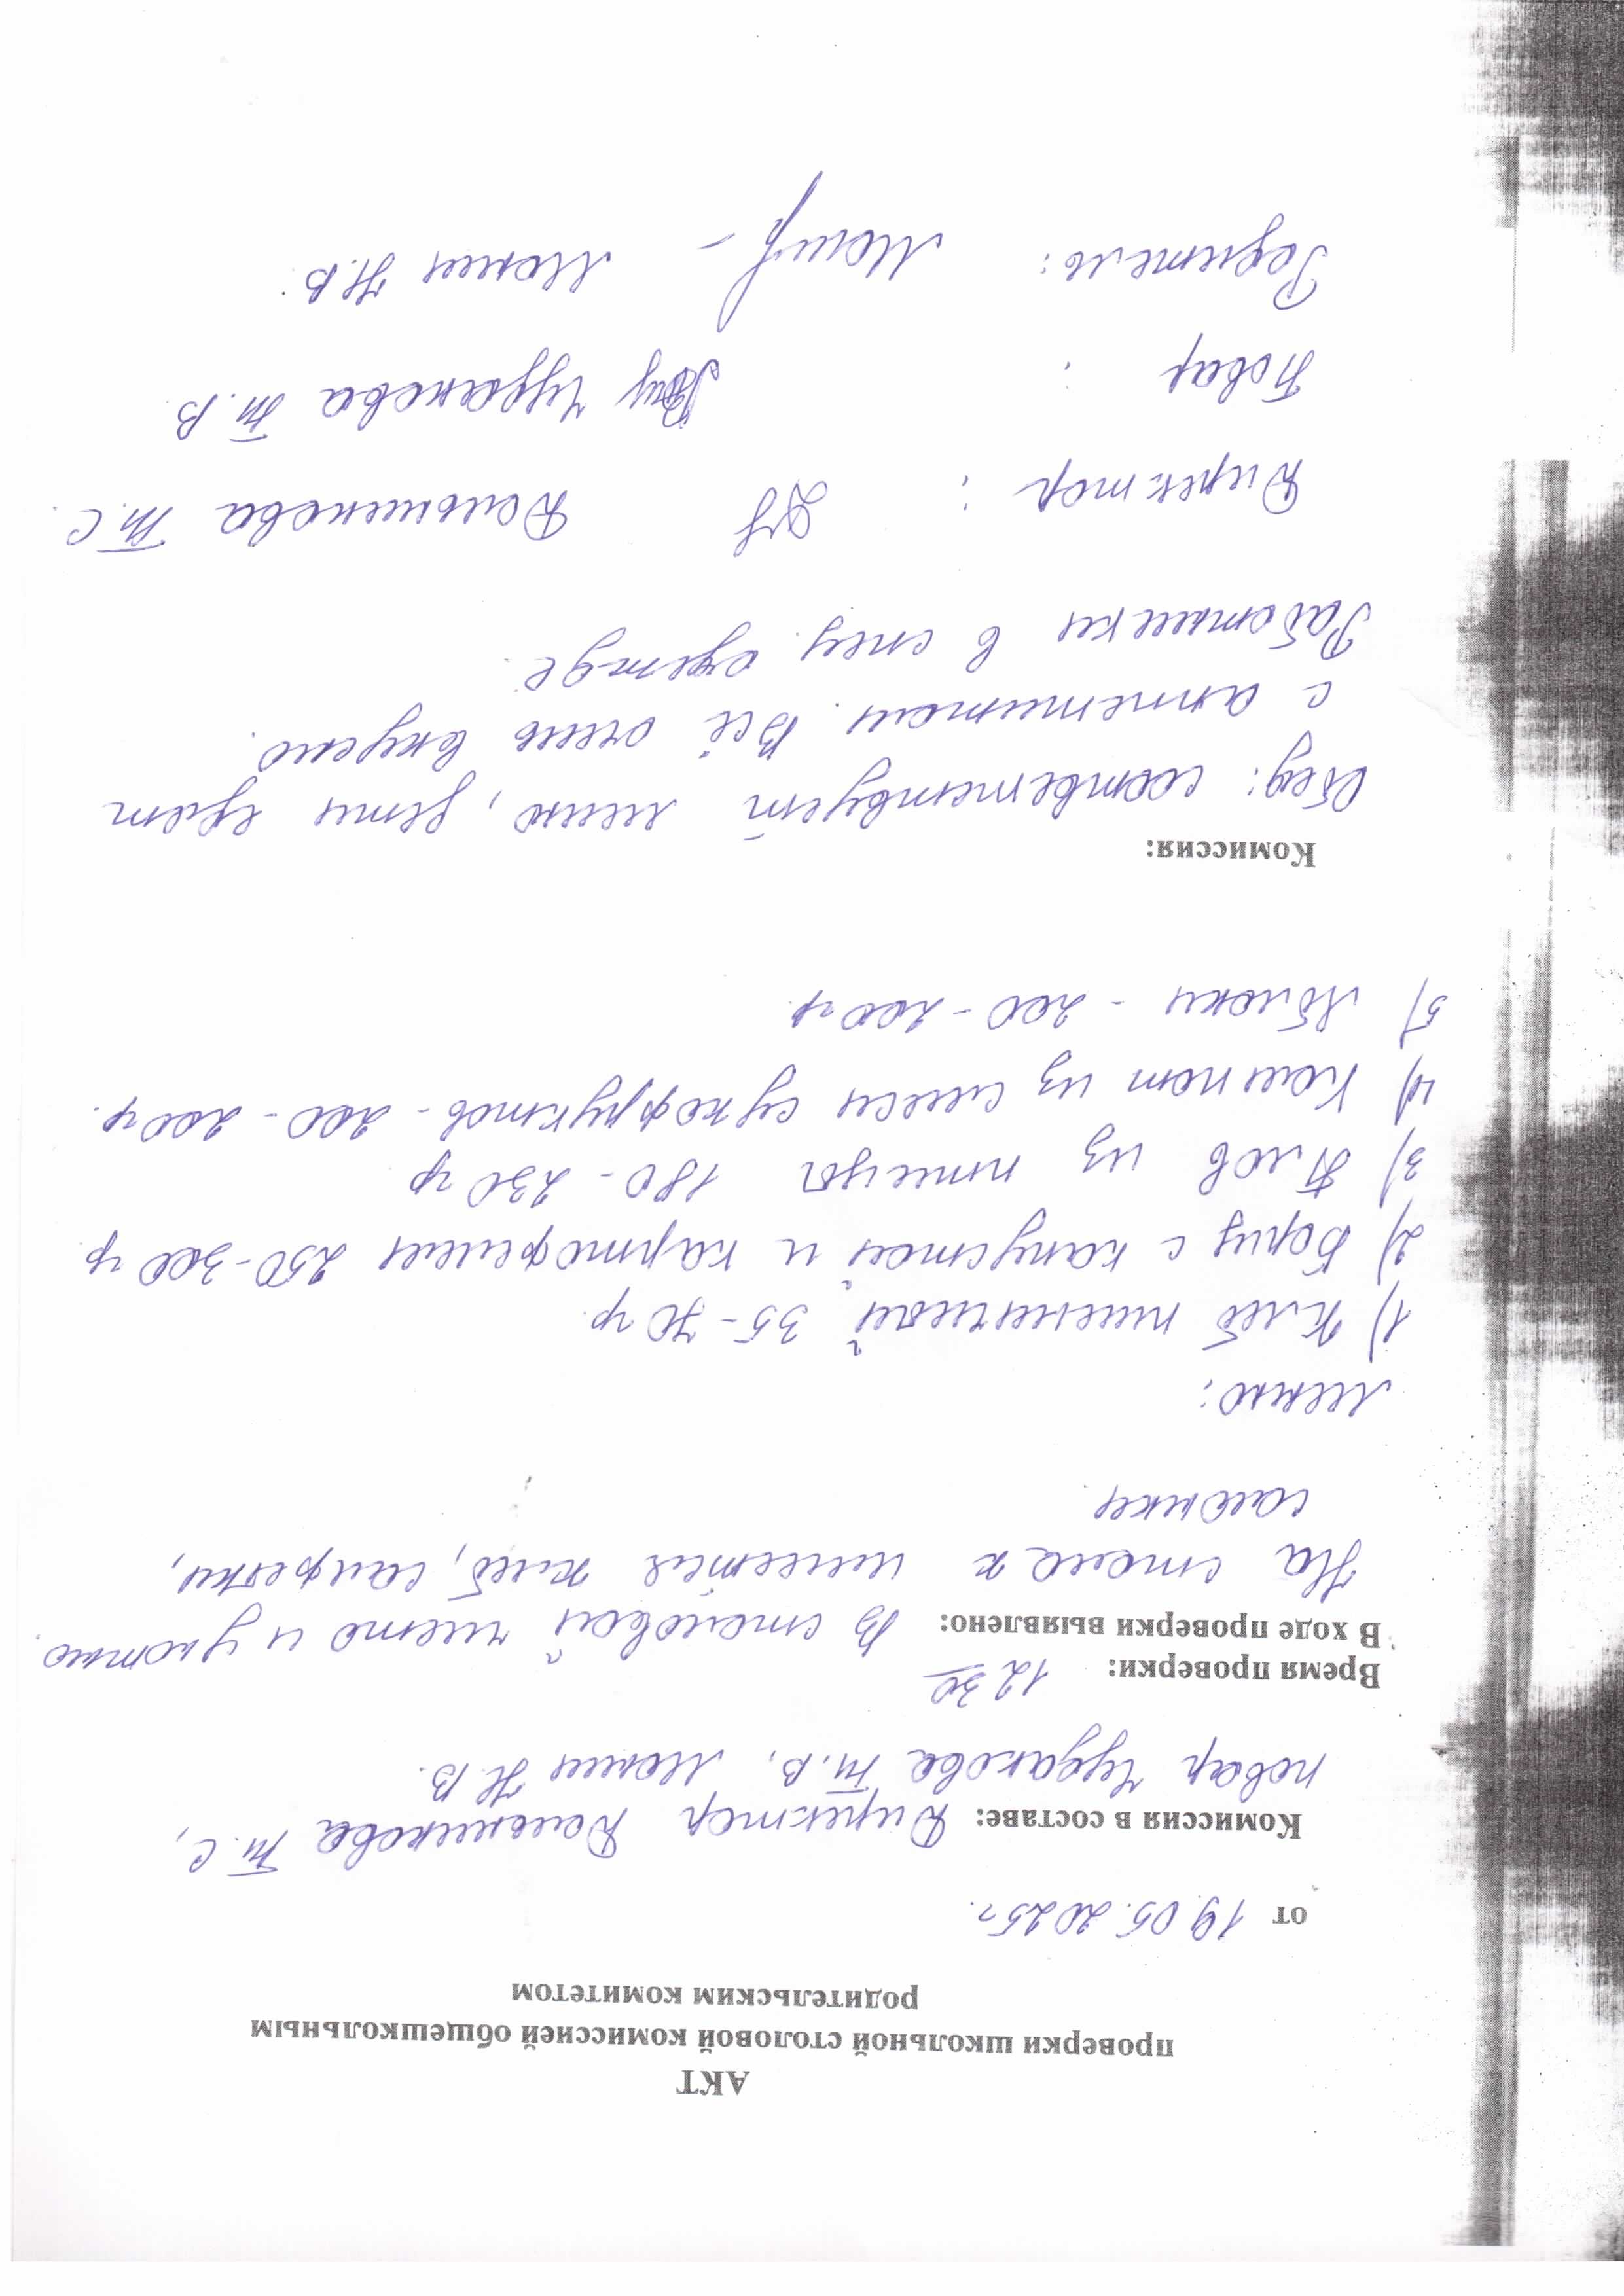 АКТ
проверки школьной столовой комиссией общешкольным
родительским комитетом
от 19.05.2025г.
Комиссия в составе: Директор Т.С.,
повар Чудакова Т.В., Н.В.
Время проверки: 12 30
В ходе проверки выявлено: В столовой чисто и уютно.
На столах имеется хлеб, салфетки,
солонки
Меню:
1) Хлеб пшеничный 35-70 гр.
2) Борщ с капустой и картофелем 250-300 гр
3) Плов из птицы 180-230 гр
4) Компот из смеси сухофруктов - 200-200 гр.
5) Яблоки - 200-200 гр
Комиссия:
Обед: соответствует меню, дети едят
с аппетитом. Всё очень вкусно.
Работники в спец. одежде.
Директор: Т.С.
Повар: Чудакова Т.В.
Родитель: Н.В.